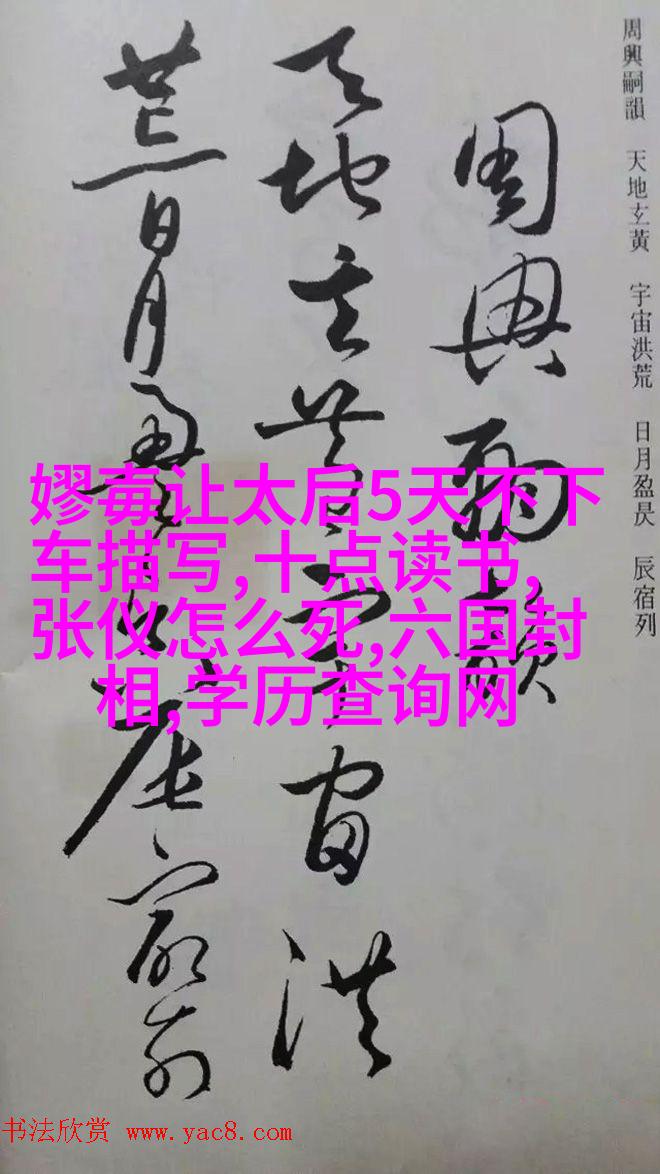 周興嗣韻 天地玄黃 宇宙洪荒 日月盈昃 辰宿列
周興嗣韻
天地玄黃宇宙洪
荒日月盈昃辰宿列
嫪毐让太后5天不下
车描写,十点读书,
张仪怎么死,六国封
相,学历查询网
书法欣赏 www.yac8.com